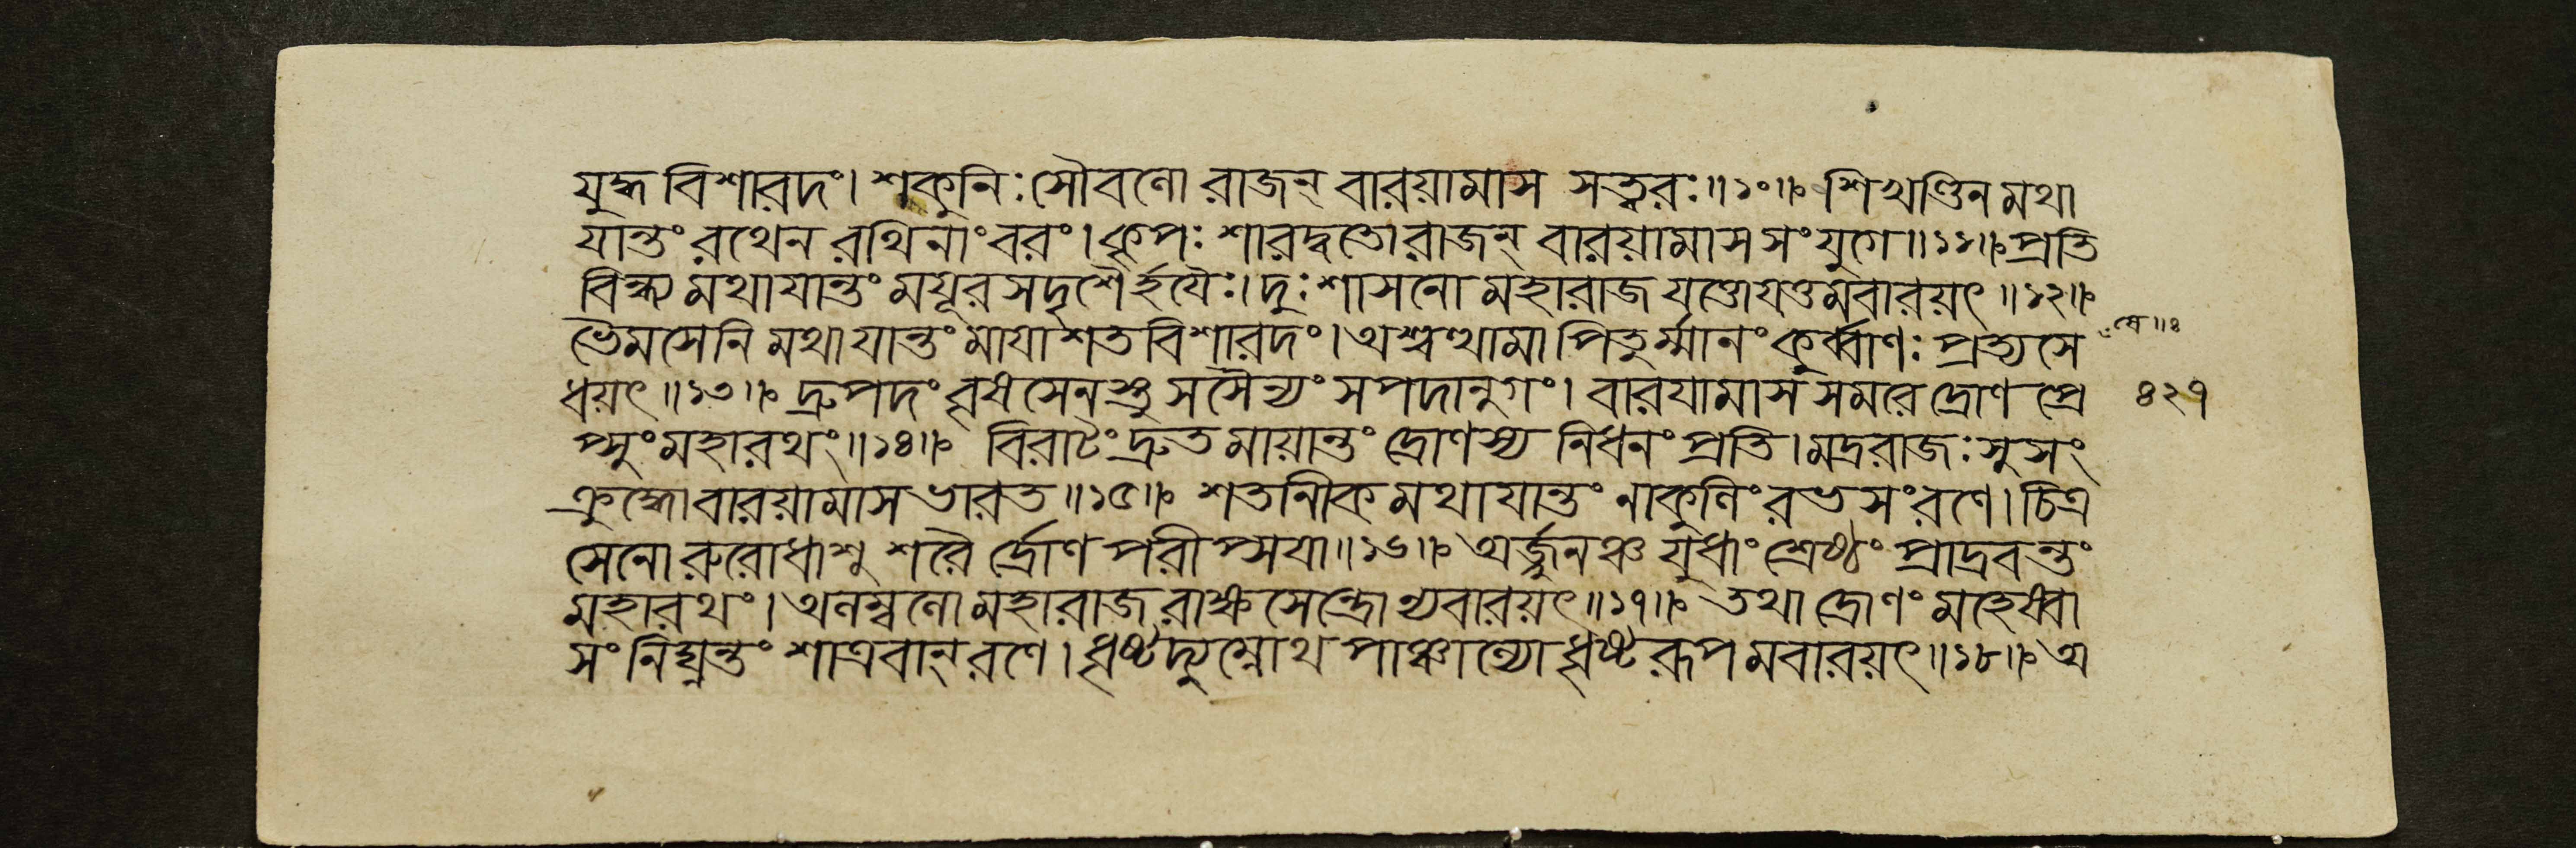 যুদ্ধ বিশারদং। শকুনিঃ সৌবলো রাজন্ বারয়ামাস সত্বরঃ॥১০॥ শিখণ্ডিন মথা
যান্তং রথেন রথিনাং বরং। কৃপঃ শারদ্বতো রাজন্ বারয়ামাস সংযুগে॥১১॥ প্রতি
বিন্ধ্য মথাযান্তং ময়ূর সদৃশৈর্হযৈঃ। দুঃশাসনো মহারাজ যত্তো যত্তমবারয়ৎ॥১২॥
ভৈমসেনি মথাযান্তং মাযাশত বিশারদং। অশ্বত্থামা পিতুর্ম্মানং কুর্ব্বাণঃ প্রত্যসে
ধয়ৎ॥১৩॥ দ্রুপদং বৃষসেনস্তু সসৈন্যং সপদানুগং। বারযামাস সমরে দ্রোণ প্রে
প্সুং মহারথং॥১৪॥ বিরাটং দ্রুত মায়ান্তং দ্রোণস্য নিধনং প্রতি। মদ্ররাজঃ সুসং
ক্রুদ্ধো বারয়ামাস ভারত॥১৫॥ শতানীক মথাযান্তং নাকুলিং রভসং রণে। চিত্র
সেনো রুরোধাশু শরৈ র্দ্রোণ পরীপ্সযা॥১৬॥ অর্জ্জুনঞ্চ যুধাং শ্রেষ্ঠং প্রাদ্রবন্তং
মহারথং। অলম্বলো মহারাজ রাক্ষসেন্দ্রো ন্যবারয়ৎ॥১৭॥ তথা দ্রোণং মহেষ্বা
সং নিঘ্নন্তং শাত্রবান্ রণে। ধৃষ্টদ্যুম্নোথ পাঞ্চাল্যো ধৃষ্টরূপ মবারয়ৎ॥১৮॥ অ
৪২৭